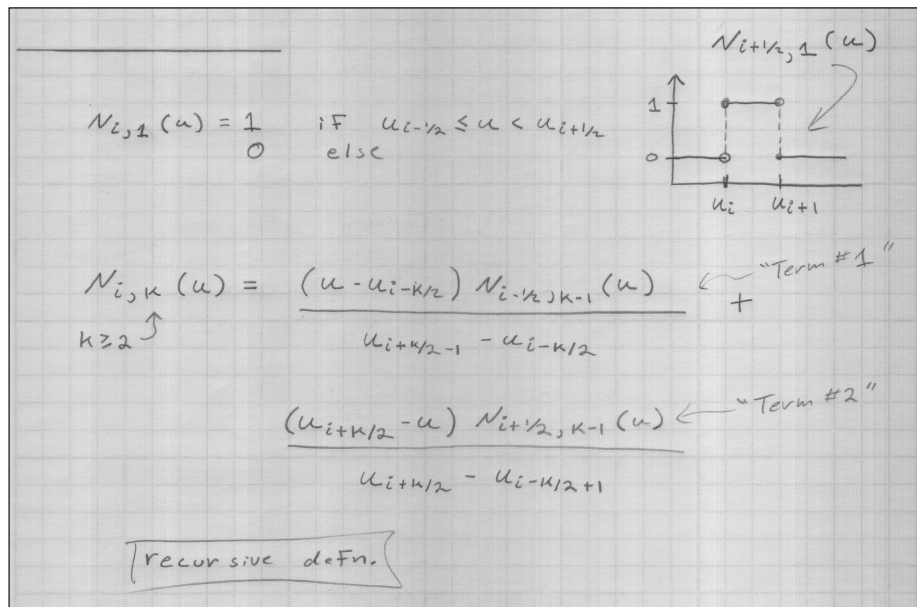 N_{i+1/2, 1}(u)
N_{i,1}(u) = 1 if u_{i-1/2} ≤ u < u_{i+1/2}
0 else
1
0
u_i u_{i+1}
N_{i,k}(u) = (u - u_{i-k/2}) N_{i-1/2,k-1}(u) "Term #1"
+
k≥2
u_{i+k/2-1} - u_{i-k/2}
(u_{i+k/2} - u) N_{i+1/2,k-1}(u) "Term #2"
u_{i+k/2} - u_{i-k/2+1}
recursive defn.